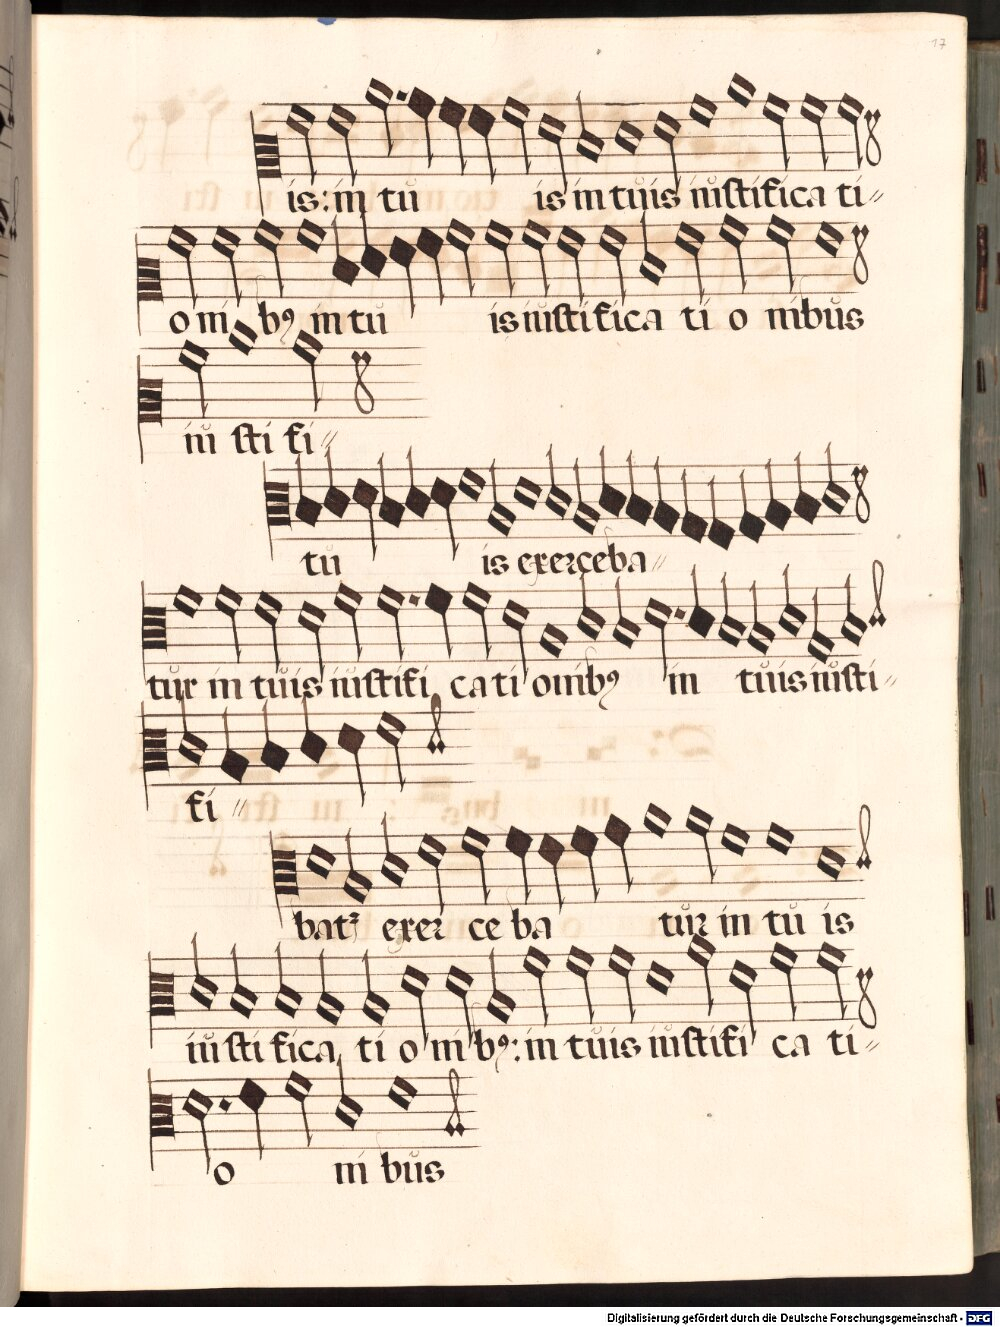 17
is: in tů is in tůis iůstifica ti//
o ni bꝰ in tů is iůstifica ti o nibůs
iů sti fi//
tů is exerceba//
tůr in tůis iůstifi ca ti onibꝰ in tůis iůsti//
fi //
batꝛ exer ce ba tůr in tů is
iů sti fica ti o ni bꝰ: in tůis iůstifi ca ti//
o ni bůs
Digitalisierung gefördert durch die Deutsche Forschungsgemeinschaft - DFG